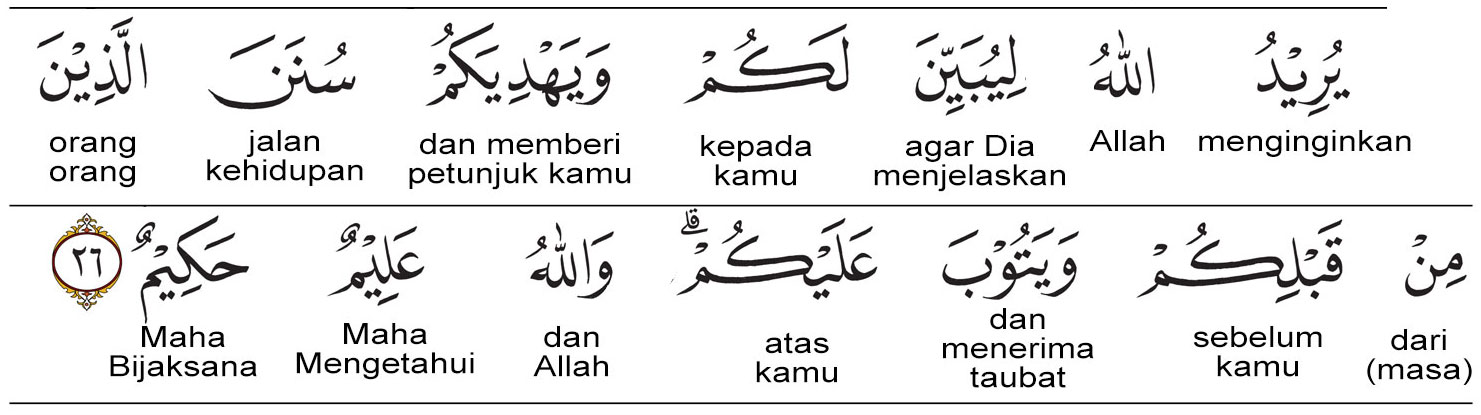 يُرِيْدُ اللّٰهُ لِيُبَيِّنَ لَكُمْ وَيَهْدِيَكُمْ سُنَنَ الَّذِيْنَ
menginginkan Allah agar Dia menjelaskan kepada kamu dan memberi petunjuk kamu jalan kehidupan orang orang
مِنْ قَبْلِكُمْ وَيَتُوْبَ عَلَيْكُمْ ۗ وَاللّٰهُ عَلِيْمٌ حَكِيْمٌ ٢٦
dari (masa) sebelum kamu dan menerima taubat atas kamu dan Allah Maha Mengetahui Maha Bijaksana